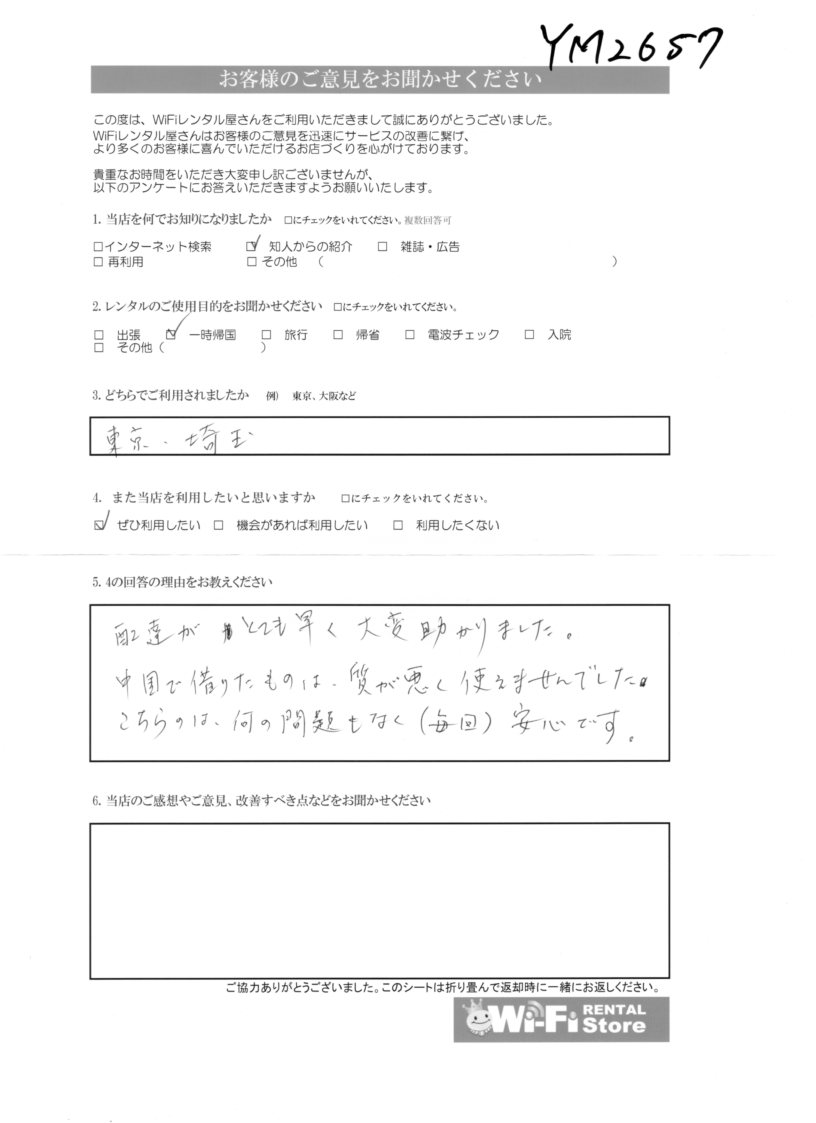 YM2657
お客様のご意見をお聞かせください
この度は、WiFiレンタル屋さんをご利用いただきまして誠にありがとうございました。
WiFiレンタル屋さんはお客様のご意見を迅速にサービスの改善に繋げ、
より多くのお客様に喜んでいただけるお店づくりを心がけております。
貴重なお時間をいただき大変申し訳ございませんが、
以下のアンケートにお答えいただきますようお願いいたします。
1. 当店を何でお知りになりましたか □にチェックをいれてください。複数回答可
□インターネット検索 ☑ 知人からの紹介 □ 雑誌・広告
□ 再利用 □ その他 ( )
2. レンタルのご使用目的をお聞かせください □にチェックをいれてください。
□ 出張 ☑ 一時帰国 □ 旅行 □ 帰省 □ 電波チェック □ 入院
□ その他 ( )
3. どちらでご利用されましたか 例) 東京、大阪など
東京、埼玉
4. また当店を利用したいと思いますか □にチェックをいれてください。
☑ ぜひ利用したい □ 機会があれば利用したい □ 利用したくない
5. 4の回答の理由をお教えください
配達がとても早く大変助かりました。
中国で借りたものは、質が悪く使えませんでした。
こちらのは、何の問題もなく(毎回)安心です。
6. 当店のご感想やご意見、改善すべき点などをお聞かせください
ご協力ありがとうございました。このシートは折り畳んで返却時に一緒にお返しください。
Wi-Fi RENTAL Store